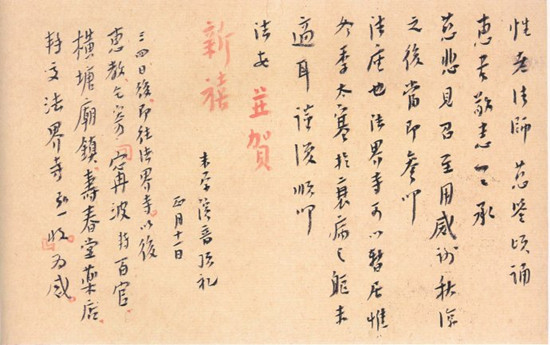 性老法師 慈鑒 頃誦
惠書敬悉一一承
慈悲見召至用感謝秋涼
之後當即參叩
法座也法界寺可以暫居惟
冬季太寒於衰病之軀未
適耳謹復順叩
法安 並賀
新禧
末學演音頂礼
正月十一日
三四日後即往法界寺以後
惠教乞寄寧波轉百官
橫塘廟鎮壽春堂藥店
轉交法界寺弘一收為感